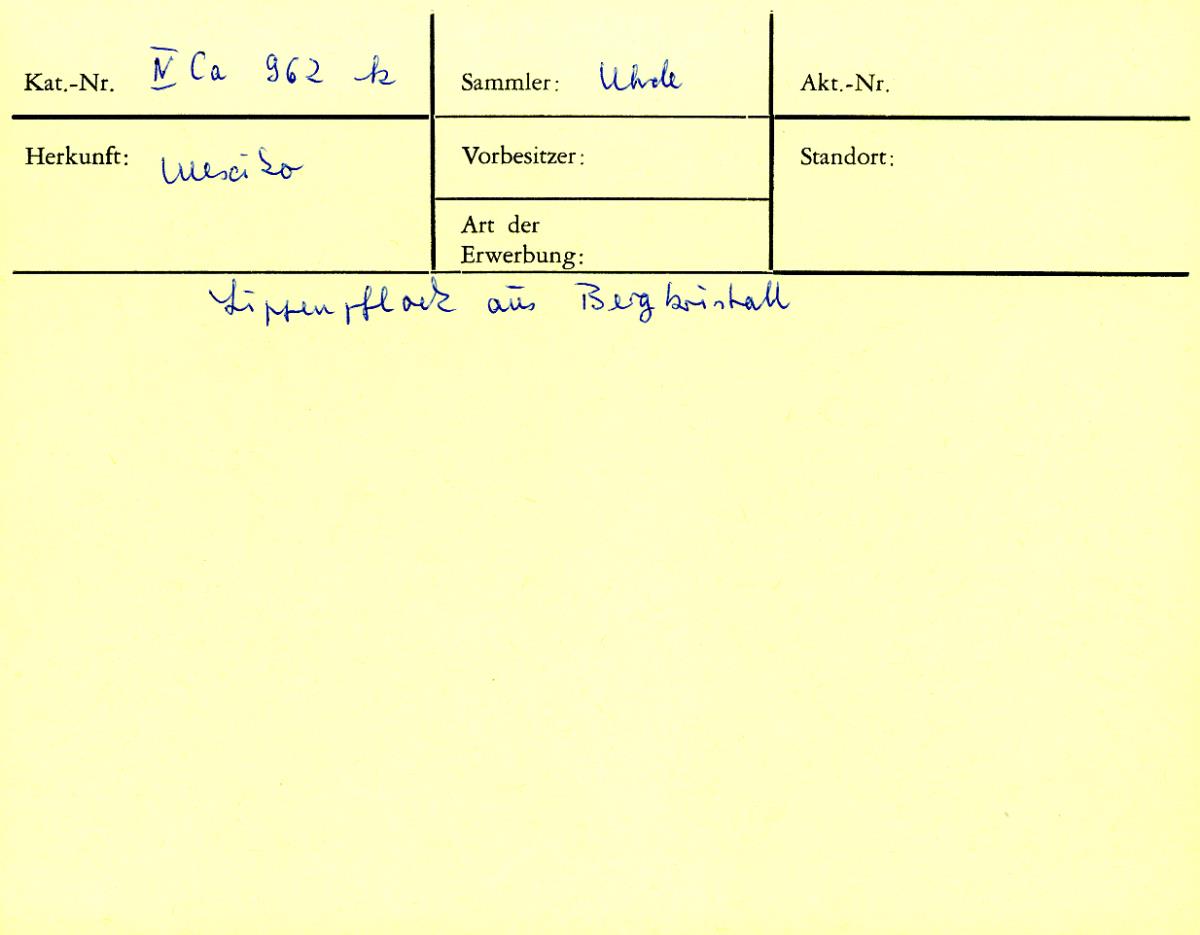 Kat.-Nr. IV Ca 962 k
Sammler: Uhde
Akt.-Nr.
Herkunft: Mexiko
Vorbesitzer:
Standort:
Art der
Erwerbung:
Lippenpflock aus Bergkristall